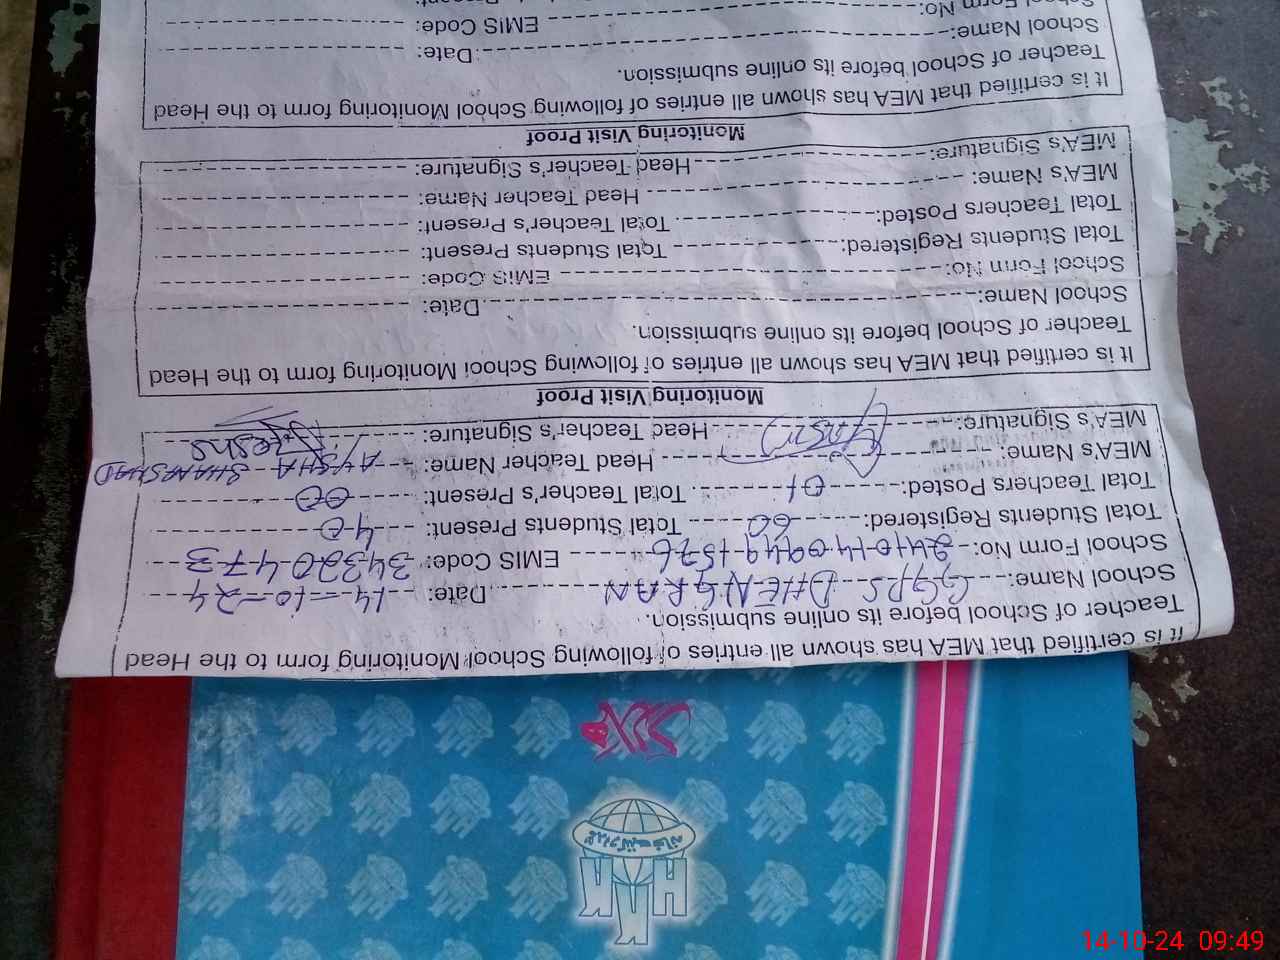 It is certified that MEA has shown all entries of following School Monitoring form to the Head
Teacher of School before its online submission.
School Name: GGPS DHENGRAN Date: 14-10-24
School Form No: 241014-0949-1576 EMIS Code: 34320473
Total Students Registered: 60 Total Students Present: 40
Total Teachers Posted: 01 Total Teacher's Present: 00
MEA's Name: Head Teacher Name: AYSHA SHAMSHAD
MEA's Signature: Head Teacher's Signature:
Monitoring Visit Proof
It is certified that MEA has shown all entries of following School Monitoring form to the Head
Teacher of School before its online submission.
School Name: Date:
School Form No: EMIS Code:
Total Students Registered: Total Students Present:
Total Teachers Posted: Total Teacher's Present:
MEA's Name: Head Teacher Name:
MEA's Signature: Head Teacher's Signature:
Monitoring Visit Proof
It is certified that MEA has shown all entries of following School Monitoring form to the Head
Teacher of School before its online submission.
School Name: Date:
School Form No: EMIS Code:
14-10-24 09:49